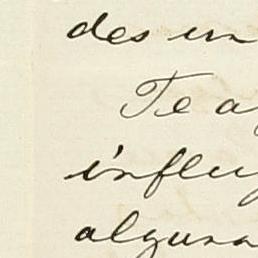 des un
Te a
influy
alguna